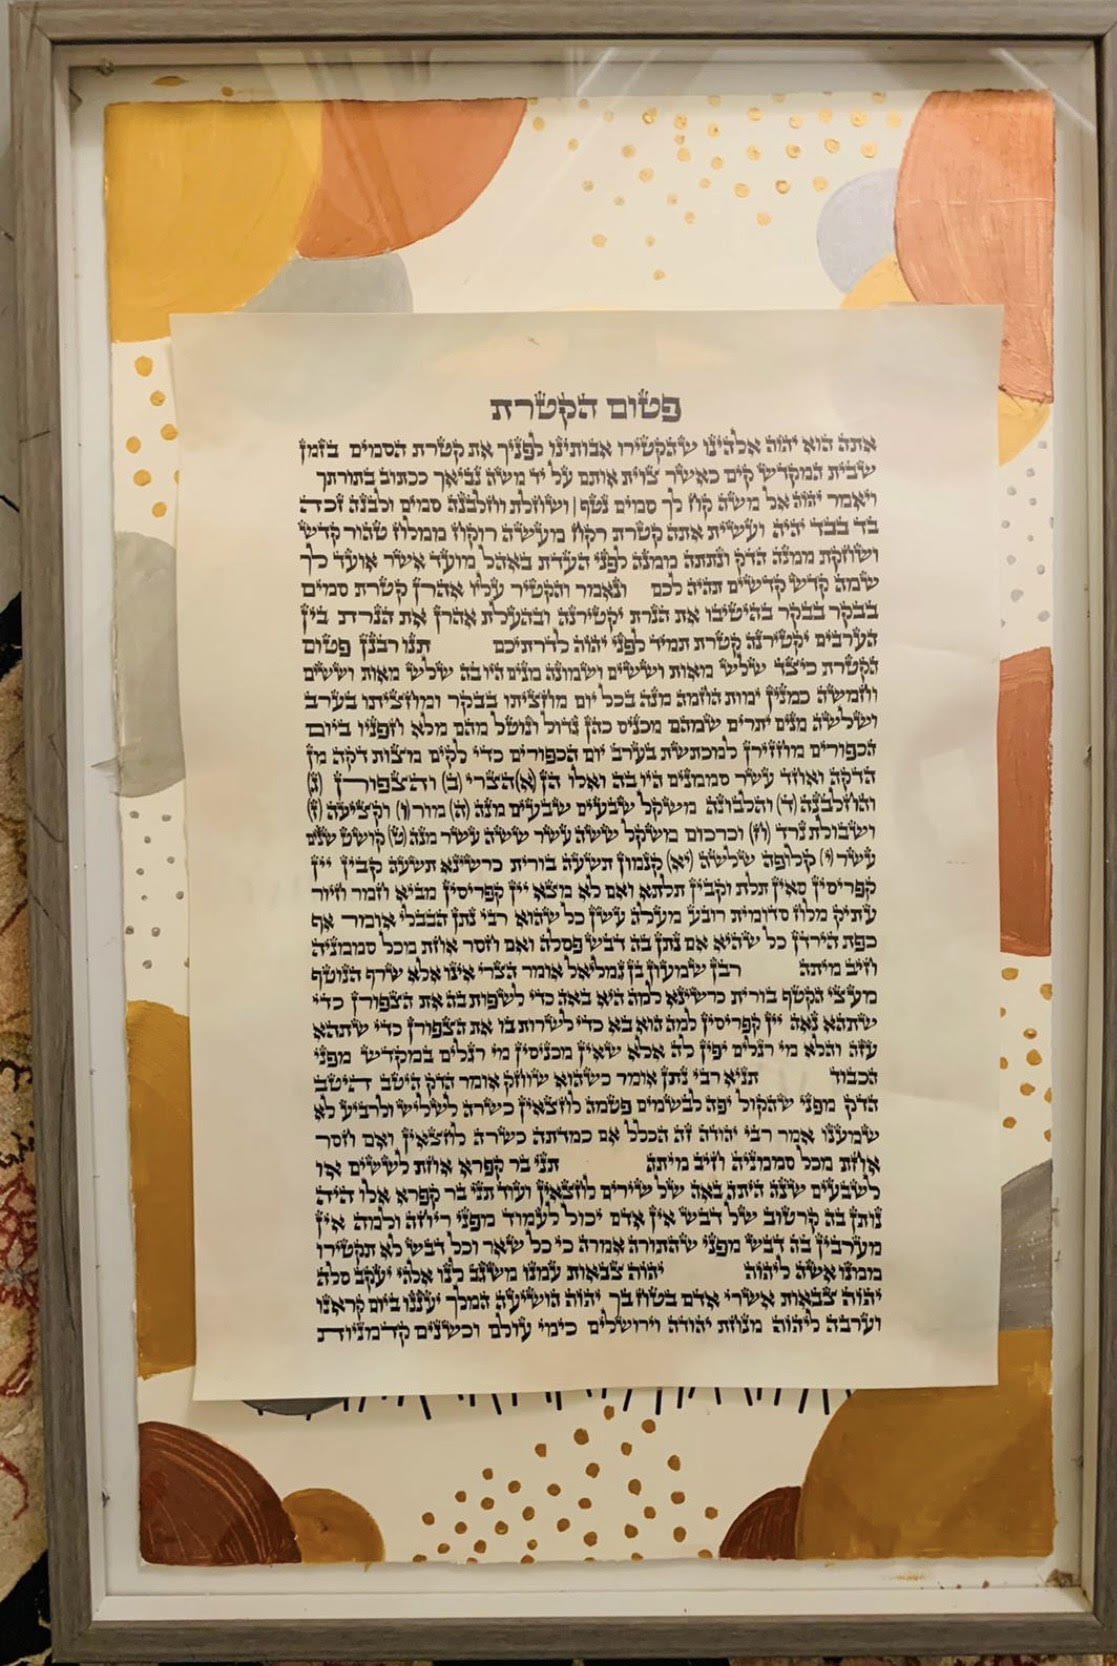 פטום הקטרת
אתה הוא יהוה אלהינו שהקטירו אבותינו לפניך את קטרת הסמים בזמן
שבית המקדש קים כאשר צוית אותם על יד משה נביאך ככתוב בתורתך
ויאמר יהוה אל משה קח לך סמים נטף | ושחלת וחלבנה סמים ולבנה זכה
בד בבד יהיה ועשית אתה קטרת רקח מעשה רוקח ממלח טהור קדש
ושחקת ממנה הדק ונתתה ממנה לפני העדת באהל מועד אשר אועד לך
שמה קדש קדשים תהיה לכם ונאמר והקטיר עליו אהרן קטרת סמים
בבקר בבקר בהיטיבו את הנרת יקטירנה ובהעלת אהרן את הנרת בין
הערבים יקטירנה קטרת תמיד לפני יהוה לדרתיכם תנו רבנן פטום
הקטרת כיצד שלש מאות וששים ושמונה מנים היו בה שלש מאות וששים
וחמשה כמנין ימות החמה מנה בכל יום מחציתו בבקר ומחציתו בערב
ושלשה מנים יתרים שמהם מכניס כהן גדול ונוטל מהם מלא חפניו ביום
הכפורים מחזירן למכתשת בערב יום הכפורים כדי לקים מצות דקה מן
הדקה ואחד עשר סממנים היו בה ואלו הן (א) הצרי (ב) והצפורן (ג)
והחלבנה (ד) והלבונה משקל שבעים שבעים מנה (ה) מור (ו) וקציעה (ז)
ושבולת נרד (ח) וכרכום משקל ששה עשר ששה עשר מנה (ט) קושט שנים
עשר (י) קלופה שלשה (יא) קנמון תשעה בורית כרשינא תשעה קבין יין
קפריסין סאין תלת וקבין תלתא ואם לא מצא יין קפריסין מביא חמר חיור
עתיק מלח סדומית רובע מעלה עשן כל שהוא רבי נתן הבבלי אומר אף
כפת הירדן כל שהיא אם נתן בה דבש פסלה ואם חסר אחת מכל סממניה
חיב מיתה רבן שמעון בן גמליאל אומר הצרי אינו אלא שרף הנוטף
מעצי הקטף בורית כרשינא למה היא באה כדי לשפות בה את הצפורן כדי
שתהא נאה יין קפריסין למה הוא בא כדי לשרות בו את הצפורן כדי שתהא
עזה והלא מי רגלים יפין לה אלא שאין מכניסין מי רגלים במקדש מפני
הכבוד תניא רבי נתן אומר כשהוא שוחק אומר הדק היטב היטב
הדק מפני שהקול יפה לבשמים פטמה לחצאין כשרה לשליש ולרביע לא
שמענו אמר רבי יהודה זה הכלל אם כמדתה כשרה לחצאין ואם חסר
אחת מכל סממניה חיב מיתה תני בר קפרא אחת לששים או
לשבעים שנה היתה באה של שירים לחצאין ועוד תני בר קפרא אלו היה
נותן בה קרטוב של דבש אין אדם יכול לעמוד מפני ריחה ולמה אין
מערבין בה דבש מפני שהתורה אמרה כי כל שאר וכל דבש לא תקטירו
ממנו אשה ליהוה יהוה צבאות עמנו משגב לנו אלהי יעקב סלה
יהוה צבאות אשרי אדם בטח בך יהוה הושיעה המלך יעננו ביום קראנו
וערבה ליהוה מנחת יהודה וירושלים כימי עולם וכשנים קדמניות